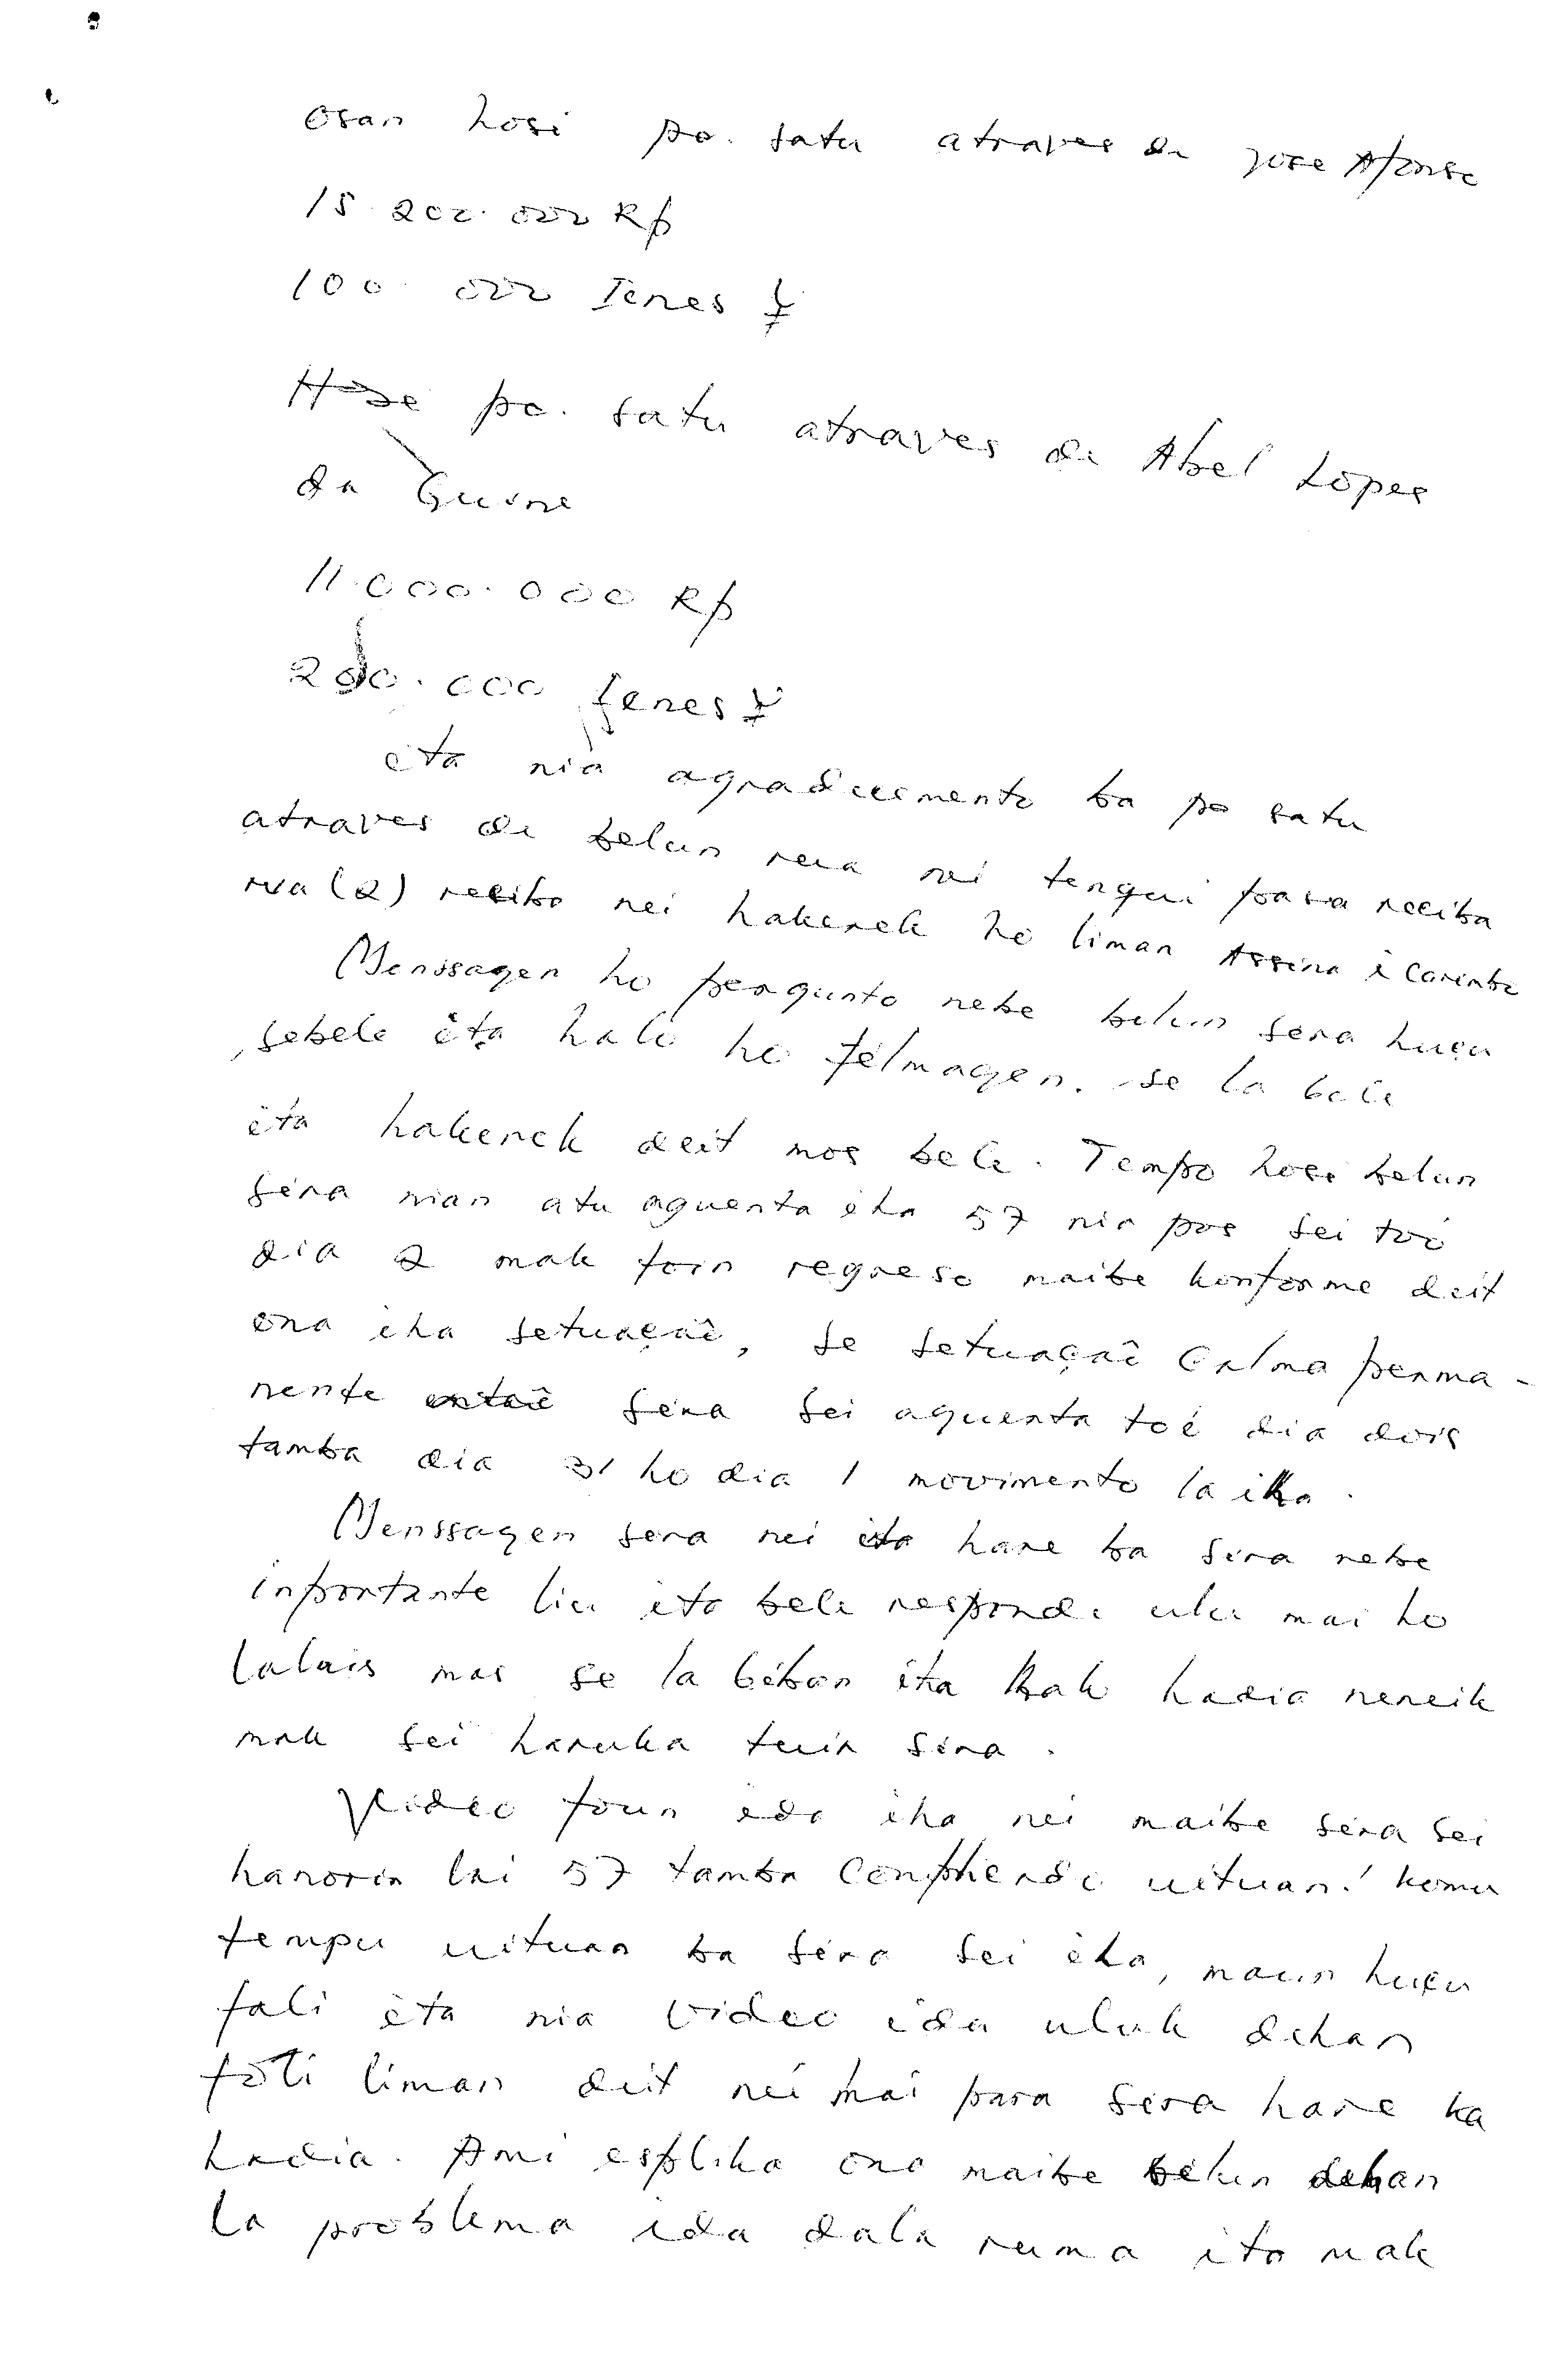 Osan hosi po. satu atraves de Jose Afonso
15.200.000 Rp
100.000 Ienes ¥
Hose po. satu atraves de Abel Lopes
da Guine
11.000.000 Rp
200.000 Ienes ¥
eta nia agradecemento ba po satu
atraves de belun rua nei tengui para reciba
rua (2) recibo nei hakerek ho liman Assina i Carimbo
Menssagen ho pergunto nebe belun sera huçu
sebele eta halo ho felmagen. se la bele
eta hakerek deit mos bele. Tempo hosi belun
sera nian atu aguenta eha 57 nia pos sei too
dia 2 mak foin regreso maibe konforme deit
ona iha setuaçaê, se setuaçaê Calma perma-
nente entaê sera sei aguenta toé dia dois
tamba dia 31 ho dia 1 movimento la iha.
Menssagen sera nei eta hare ba sira nebe
inportante liu ita bele responde ulu mai ho
lalais mas se la béban ita halo hadia neneik
mak sei haruka tuir sira.
Video foun eda iha nei maibe sera sei
hanorin lai 57 tamba Conpriendo uituan! komu
tempu uituan ba sera sei eha, maun huçu
fali eta nia video ida uluk dehan
foti liman deit nei mai para sera hare ka
hadia. Ami esplika ona maibe belun dehan
la problema ida dala ruma ita mak